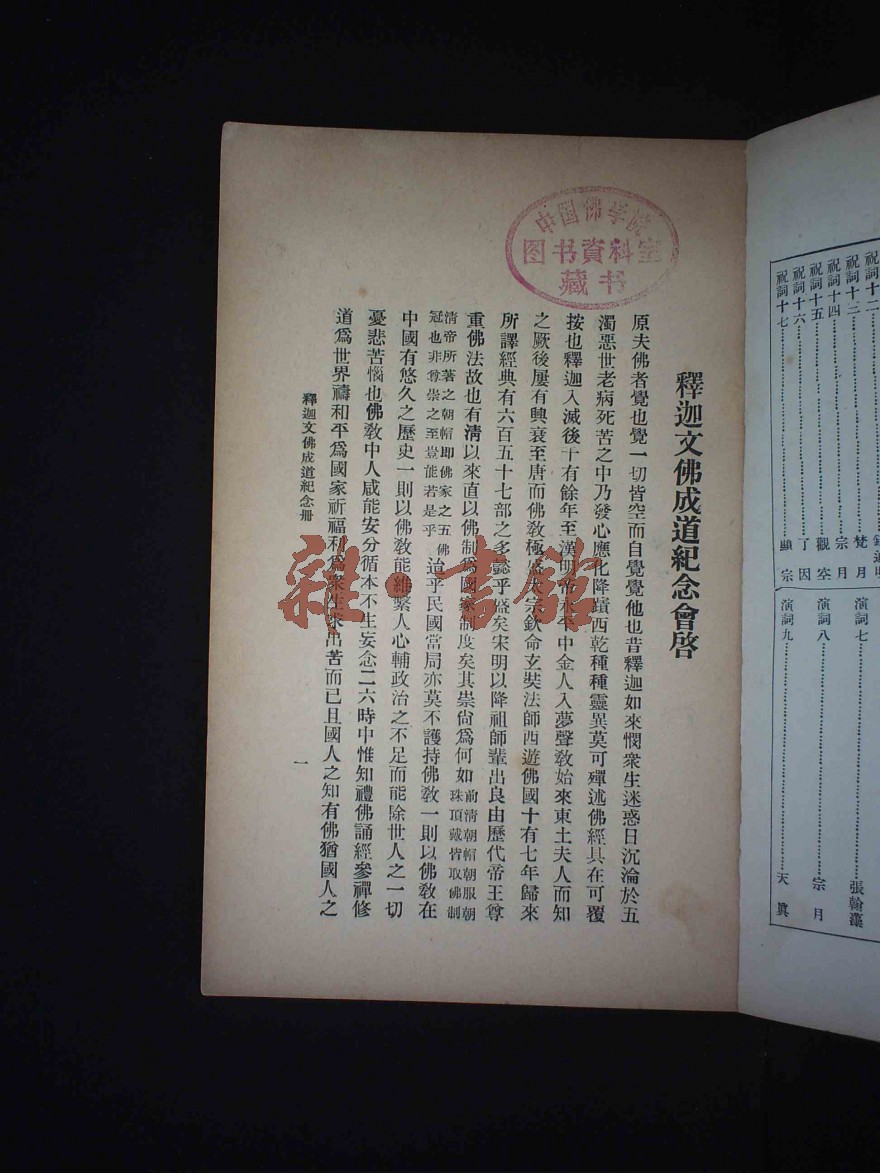 中国佛学院
图书資料室
藏书
釋迦文佛成道紀念會啓
原夫佛者覺也覺一切皆空而自覺覺他也昔釋迦如來憫衆生迷惑日沉淪於五
濁惡世老病死苦之中乃發心應化降蹟西乾種種靈異莫可殫述佛經具在可覆
按也釋迦入滅後千有餘年至漢明帝永平中金人入夢聲敎始來東土夫人而知
之厥後屢有興衰至唐而佛敎極盛太宗欽命玄奘法師西遊佛國十有七年歸來
所譯經典有六百五十七部之多懿乎盛矣宋明以降祖師輩出良由歷代帝王尊
重佛法故也有清以來直以佛制爲國家制度矣其崇尙爲何如前清朝帽朝服朝
珠頂戴皆取佛制
清帝所著之朝帽即佛家之五佛
冠也非尊崇之至豈能若是乎
治乎民國當局亦莫不護持佛敎一則以佛敎在
中國有悠久之歷史一則以佛敎能維繫人心輔政治之不足而能除世人之一切
憂悲苦惱也佛敎中人咸能安分循本不生妄念二六時中惟知禮佛誦經參禪修
道爲世界禱和平爲國家祈福利爲衆生求出苦而已且國人之知有佛猶國人之
釋迦文佛成道紀念册
一
雜·書館
祝詞十二
祝詞十三 梵月
祝詞十四 宗月
祝詞十五 觀空
祝詞十六 了因
祝詞十七 顯宗
演詞七 張翰藻
演詞八 宗月
演詞九 天眞